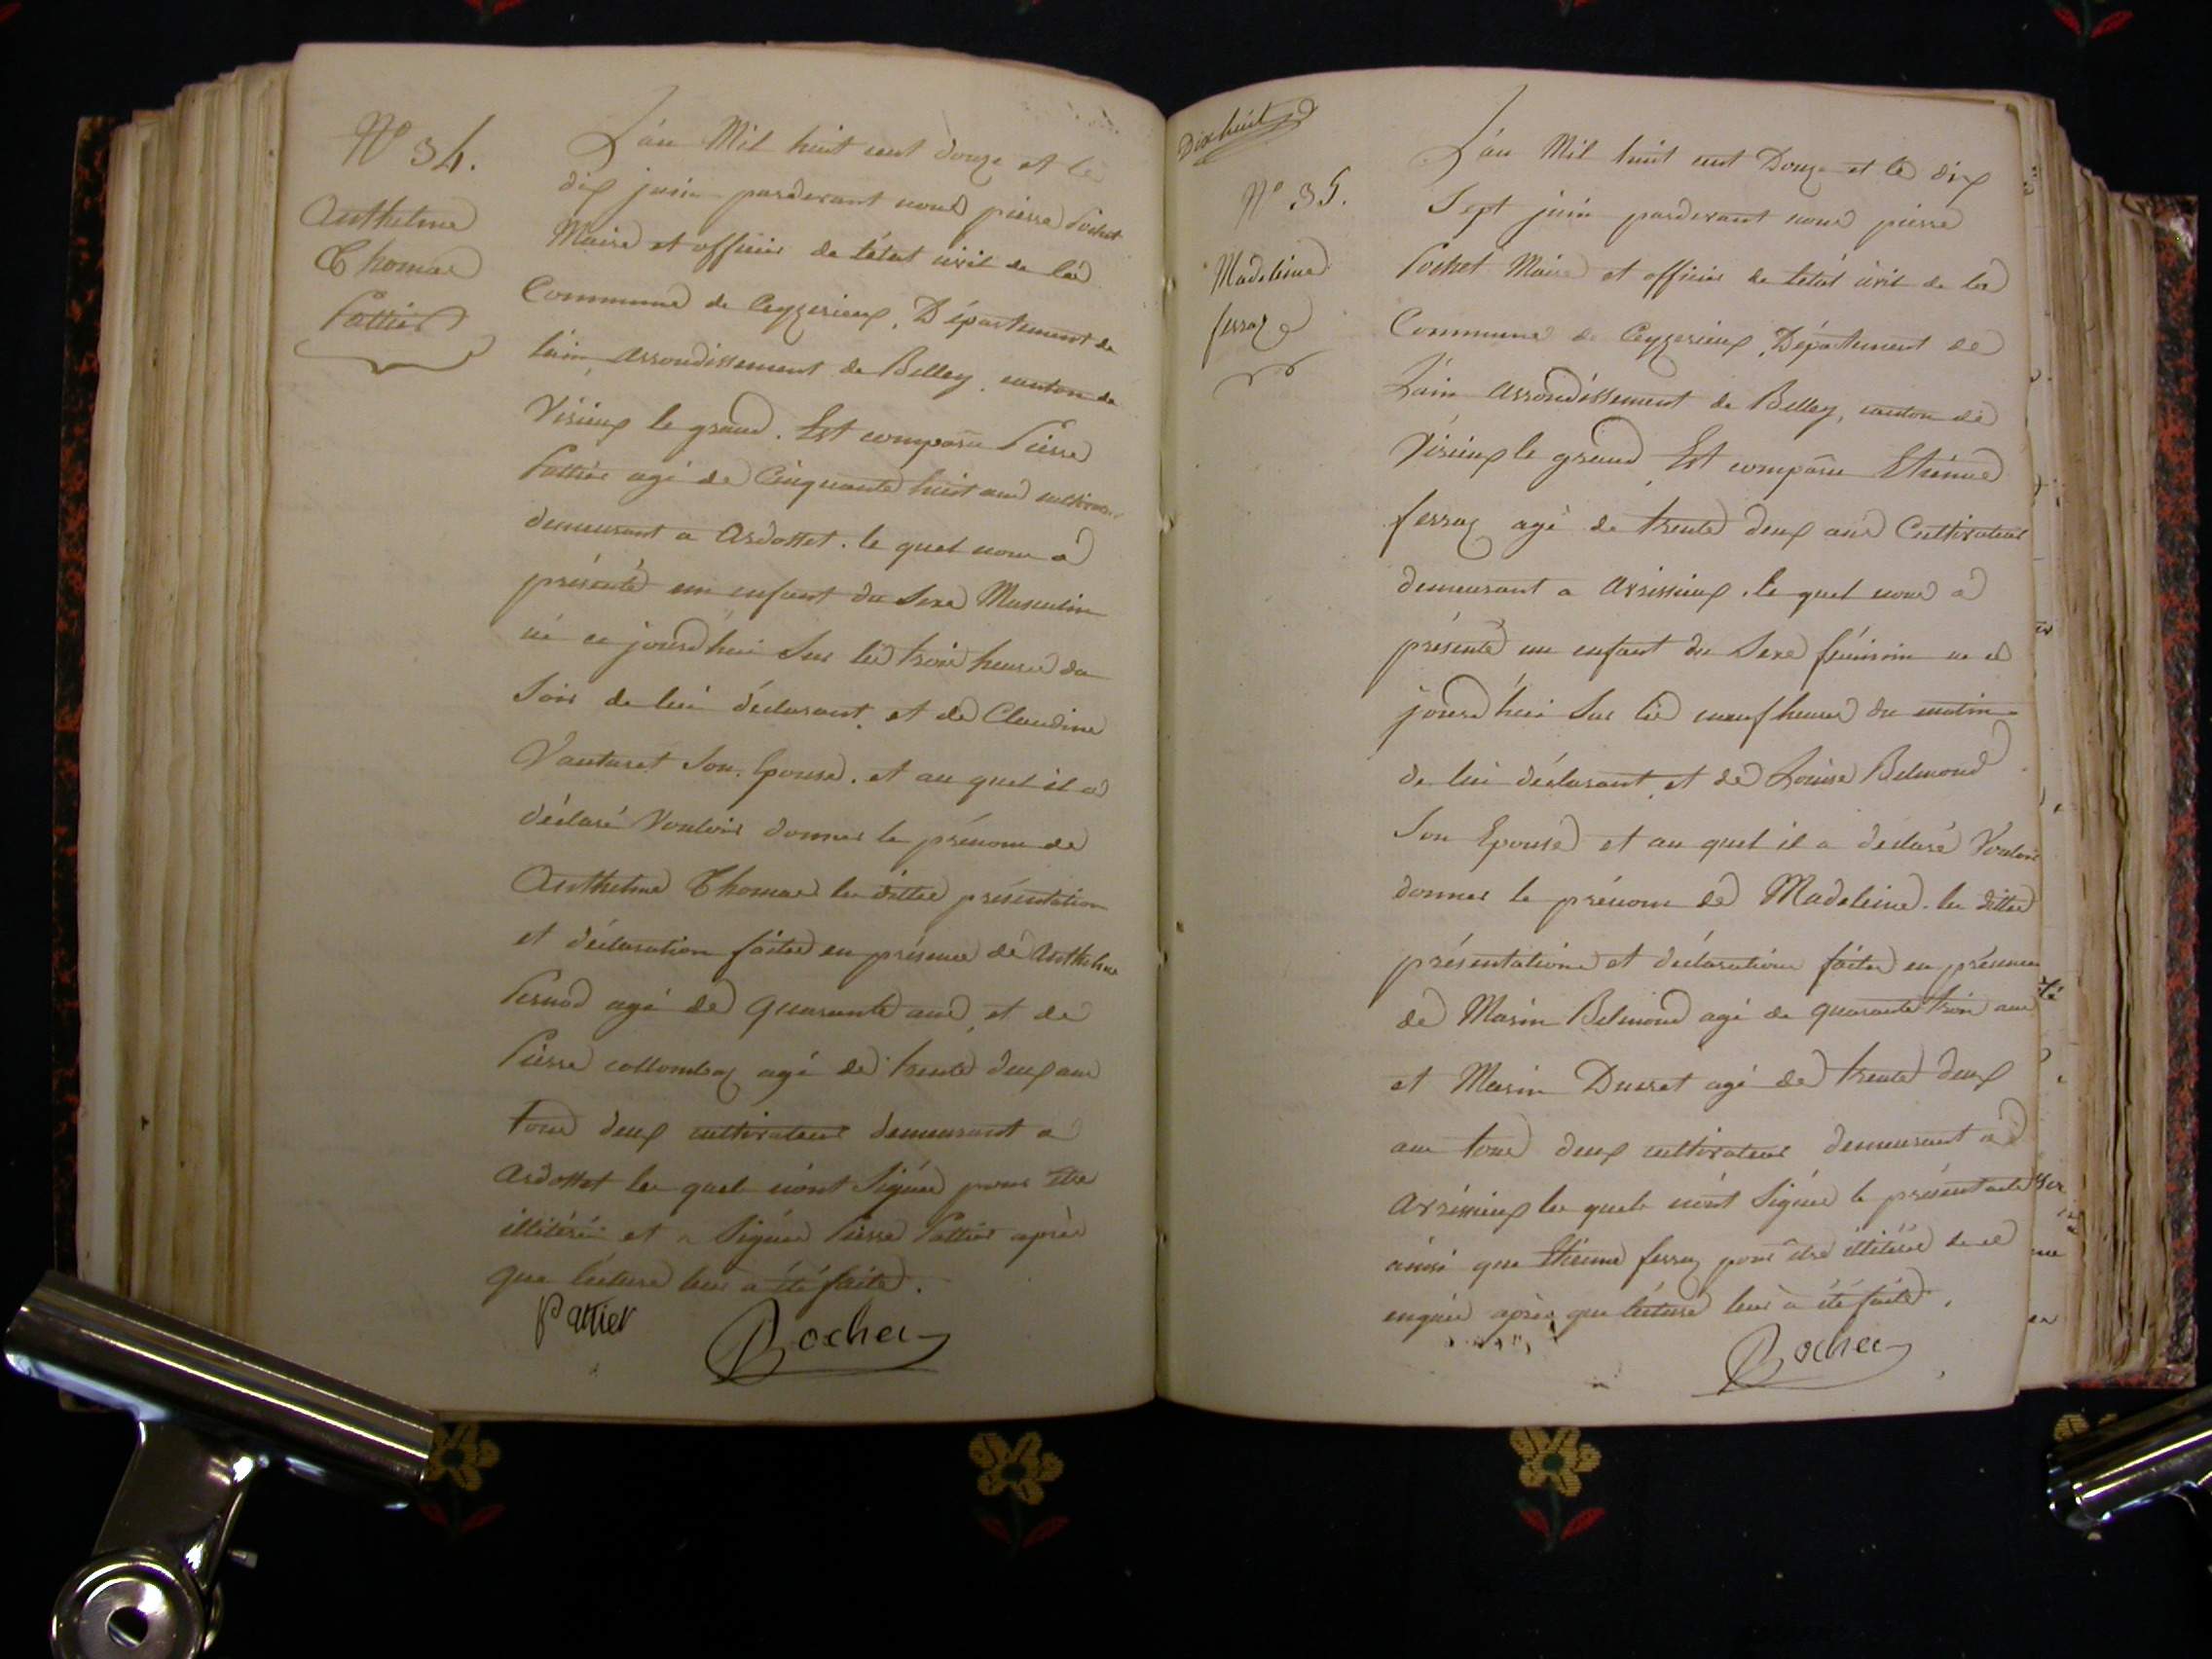 N° 34.
Anthelme
Thomas
Pattier
L'an Mil huit cent douze et le
dix juin pardevant nous pierre Pochet
Maire et officier de l'état civil de la
Commune de Ceyzerieux, Département de
lain, arrondissement de Belley, canton de
Virieux le grand. Est comparu Pierre
Pattier agé de Cinquante huit ans cultivateur
demeurant a Ardosset. le quel nous a
présenté un enfant du Sexe Masculin
né ce jourd'hui Sur les trois heures du
Soir de lui déclarant, et de Claudine
Vauturet Son Epouse. et au quel il a
déclaré Vouloir donner le prénom de
Anthelme Thomas les dittes présentation
et déclaration faites en présence de Anthelme
Pernod agé de quarante ans, et de
Pierre collombaz agé de trente deux ans
tous deux cultivateurs demeurant a
Ardosset les quels n'ont Signés pour être
illitérés et a Signée Pierre Pattier après
que lecture leur a été faite.
Pattier
Pochet
Dix huit
N° 35.
Madeleine
ferraz
L'an Mil huit cent Douze et le dix
Sept juin pardevant nous pierre
Pochet Maire et officier de l'etat civil de la
Commune de Ceyzerieux, Département de
L'ain arrondissement de Belley, canton de
Virieux le grand, Est comparu Etienne
ferraz agé de trente deux ans Cultivateur
demeurant a Avrissieux. le quel nous a
présenté un enfant du Sexe féminin né ce
jourd'hui Sur les neuf heures du matin
de lui déclarant, et de Louise Belmond
Son Epouse et au quel il a declaré Vouloir
donner le prénom de Madeleine. les dittes
présentations et déclarations faites en présence
de Marin Belmond agé de quarante trois ans
et Marin Ducret agé de trente deux
ans tous deux cultivateurs demeurant a
Avrissieux les quels n'ont Signés le présent acte
ainsi que Etienne ferraz pour être illitérés de ce
enquis après que lecture leur a été faite.
Pochet